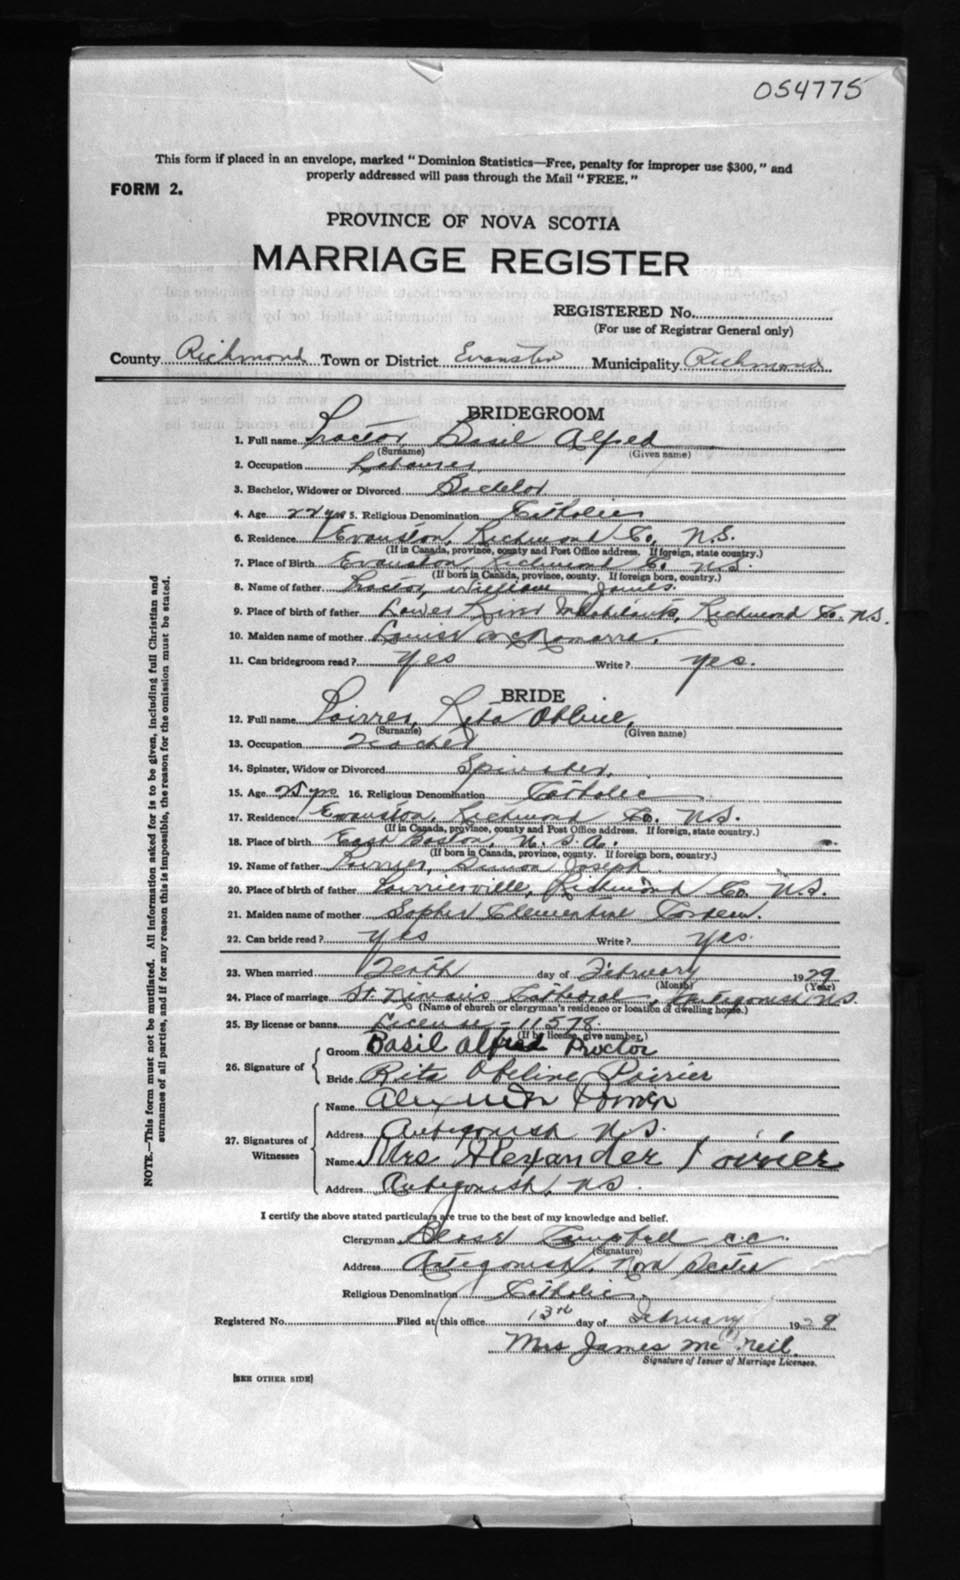 054775
This form if placed in an envelope, marked "Dominion Statistics—Free, penalty for improper use $300," and
properly addressed will pass through the Mail "FREE."
FORM 2.
PROVINCE OF NOVA SCOTIA
MARRIAGE REGISTER
REGISTERED No.
(For use of Registrar General only)
County Richmond Town or District Evanston Municipality Richmond
BRIDEGROOM
1. Full name Proctor Basil Alfred
(Surname) (Given name)
2. Occupation Labourer
3. Bachelor, Widower or Divorced Bachelor
4. Age 22 yrs 5. Religious Denomination Catholic
6. Residence Evanston, Richmond Co, N.S.
(If in Canada, province, county and Post Office address. If foreign, state country.)
7. Place of Birth Evanston Richmond Co N.S.
(If born in Canada, province, county. If foreign born, country.)
8. Name of father Proctor, William James
9. Place of birth of father Lower River Inhabitants, Richmond Co. N.S.
10. Maiden name of mother Louise McNamarra.
11. Can bridegroom read? Yes Write? yes.
BRIDE
12. Full name Poirrer, Rita Obline,
(Surname) (Given name)
13. Occupation Teacher
14. Spinster, Widow or Divorced Spinster.
15. Age 25 yrs 16. Religious Denomination Catholic
17. Residence Evanston, Richmond Co. N.S.
(If in Canada, province, county and Post Office address. If foreign, state country.)
18. Place of birth East Boston, U.S.A.
(If born in Canada, province, county. If foreign born, country.)
19. Name of father Poirrier, Simon Joseph
20. Place of birth of father Poirrierville, Richmond Co N.S.
21. Maiden name of mother Sophie Clementine
22. Can bride read? yes Write? yes.
23. When married Tenth day of February 1929
(Month) (Year)
24. Place of marriage St. Ninian's Cathedral, Antigonish N.S.
(Name of church or clergyman's residence or location of dwelling house.)
25. By license or banns License - 11578
(If by license, give number.)
26. Signature of
Groom Basil Alfred Proctor
Bride Rita Obeline Poirier
27. Signatures of
Witnesses
Name Alexander Poirier
Address Antigonish N.S.
Name Mrs Alexander Poirier
Address Antigonish, N.S.
I certify the above stated particulars are true to the best of my knowledge and belief.
Clergyman Campbell C.C.
(Signature)
Address Antigonish, Nova Scotia
Religious Denomination Catholic
Registered No. Filed at this office 13th day of February 1929
Mrs James McNeil.
Signature of Issuer of Marriage Licenses.
[SEE OTHER SIDE]
NOTE.—This form must not be mutilated. All information asked for is to be given, including full Christian and
surnames of all parties, and if for any reason this is impossible, the reason for the omission must be stated.